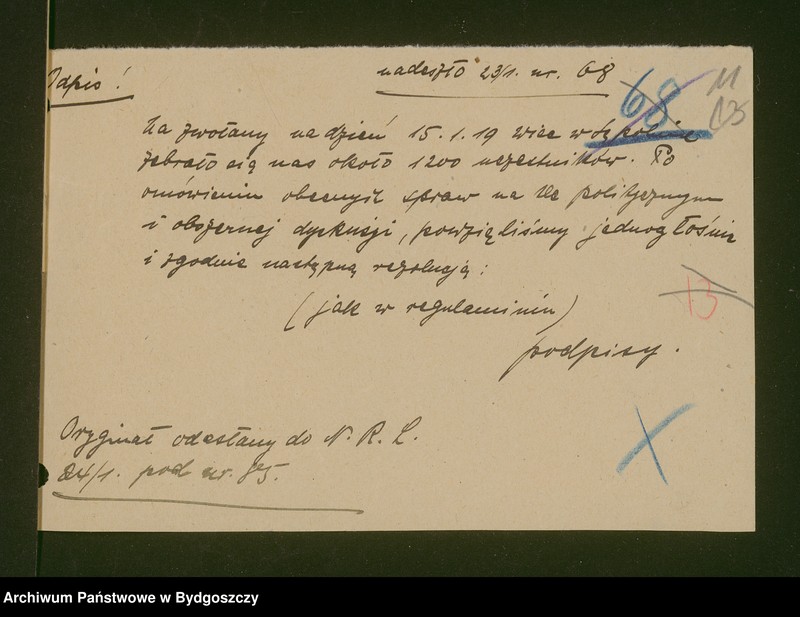 Odpis! nadeszło 23/1. nr. 68
68 11
135
Na zwołany na dzień 15.1.19 wiec w Szpolinie
zebrało się nas około 1200 uczestników. Po
omówieniu obecnych spraw na tle politycznym
i obszernej dyskusji, powzięliśmy jednogłośnie
i zgodnie następną rezolucją:
13
(jak w regulaminie)
podpisy.
Oryginał odesłany do N. R. L.
24/1. pod nr. 85.
Archiwum Państwowe w Bydgoszczy